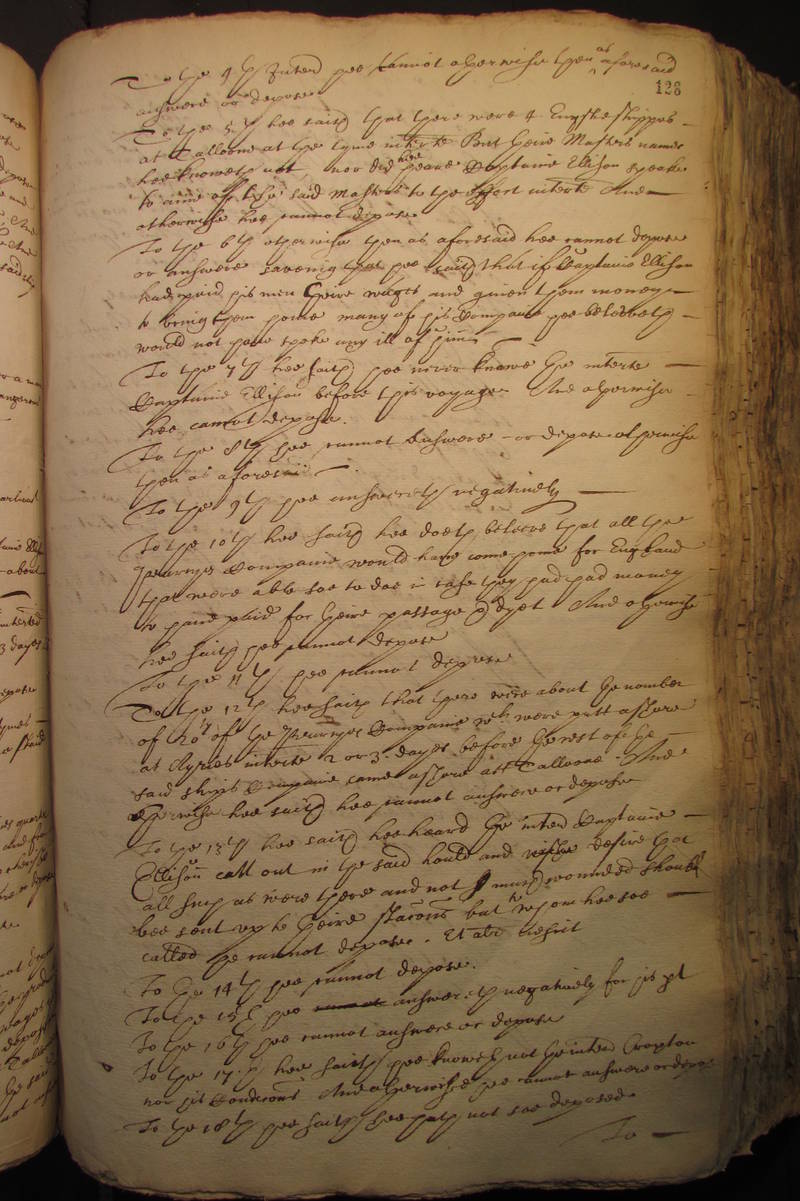 To the 4th Interr hee cannot otherwise then as aforesaid
128
answere or depose
To the 5th hee saith that there were 4 English shipps
at Talloone at the tyme interrte But theire Masters names
hee knoweth not, nor did hee heare Captaine Ellison speake
to anie of the said Masters to the effect interrte And
otherwise hee cannot depose
To the 6th otherwise then as aforesaid hee cannot depose
or answere saveing that hee saith that if Captaine Ellison
had paid his men theire wages and given them money
to bring them home many of his Companie hee beleeveth
would not have spoke any ill of him
To the 7th hee saith hee never knewe the interrte
Captaine Ellison before this voyage And otherwise
hee cannot depose.
To the 8th hee cannot answere or depose otherwise
then as aforesaid
To the 9th hee answereth negatively
To the 10th hee saith hee doeth beleeve that all the
Companie would have come home for England
that were able soe to doe in case they had had money
to have paid for theire passage & dyet And otherwise
hee saith hee cannot depose
To the 11th hee cannot depose
To the 12th hee saith that there were about the number
of 20ty of the Companie wch were putt ashore
at interrte 2 or 3 dayes before the rest of the
said shipps Companie came ashore att Talloone. And
otherwise hee saith hee cannot answere or depose
To the 13th hee saith hee heard the interrd Captaine
Ellison call out in the said and desire that
all such as were there and not much wounded should
bee sent up to theire stacons but whome hee soe
called he cannot depose. Et alr nescit
To the 14th hee cannot depose.
To the 15th hee answereth negatively for his pt
To the 16th hee cannot answere or depose
To the 17th hee saith hee knoweth not the interrd Croxton
nor his Condicons And otherwise hee cannot answere or depose
To the 18th hee saith hee hath not soe deposed.
To